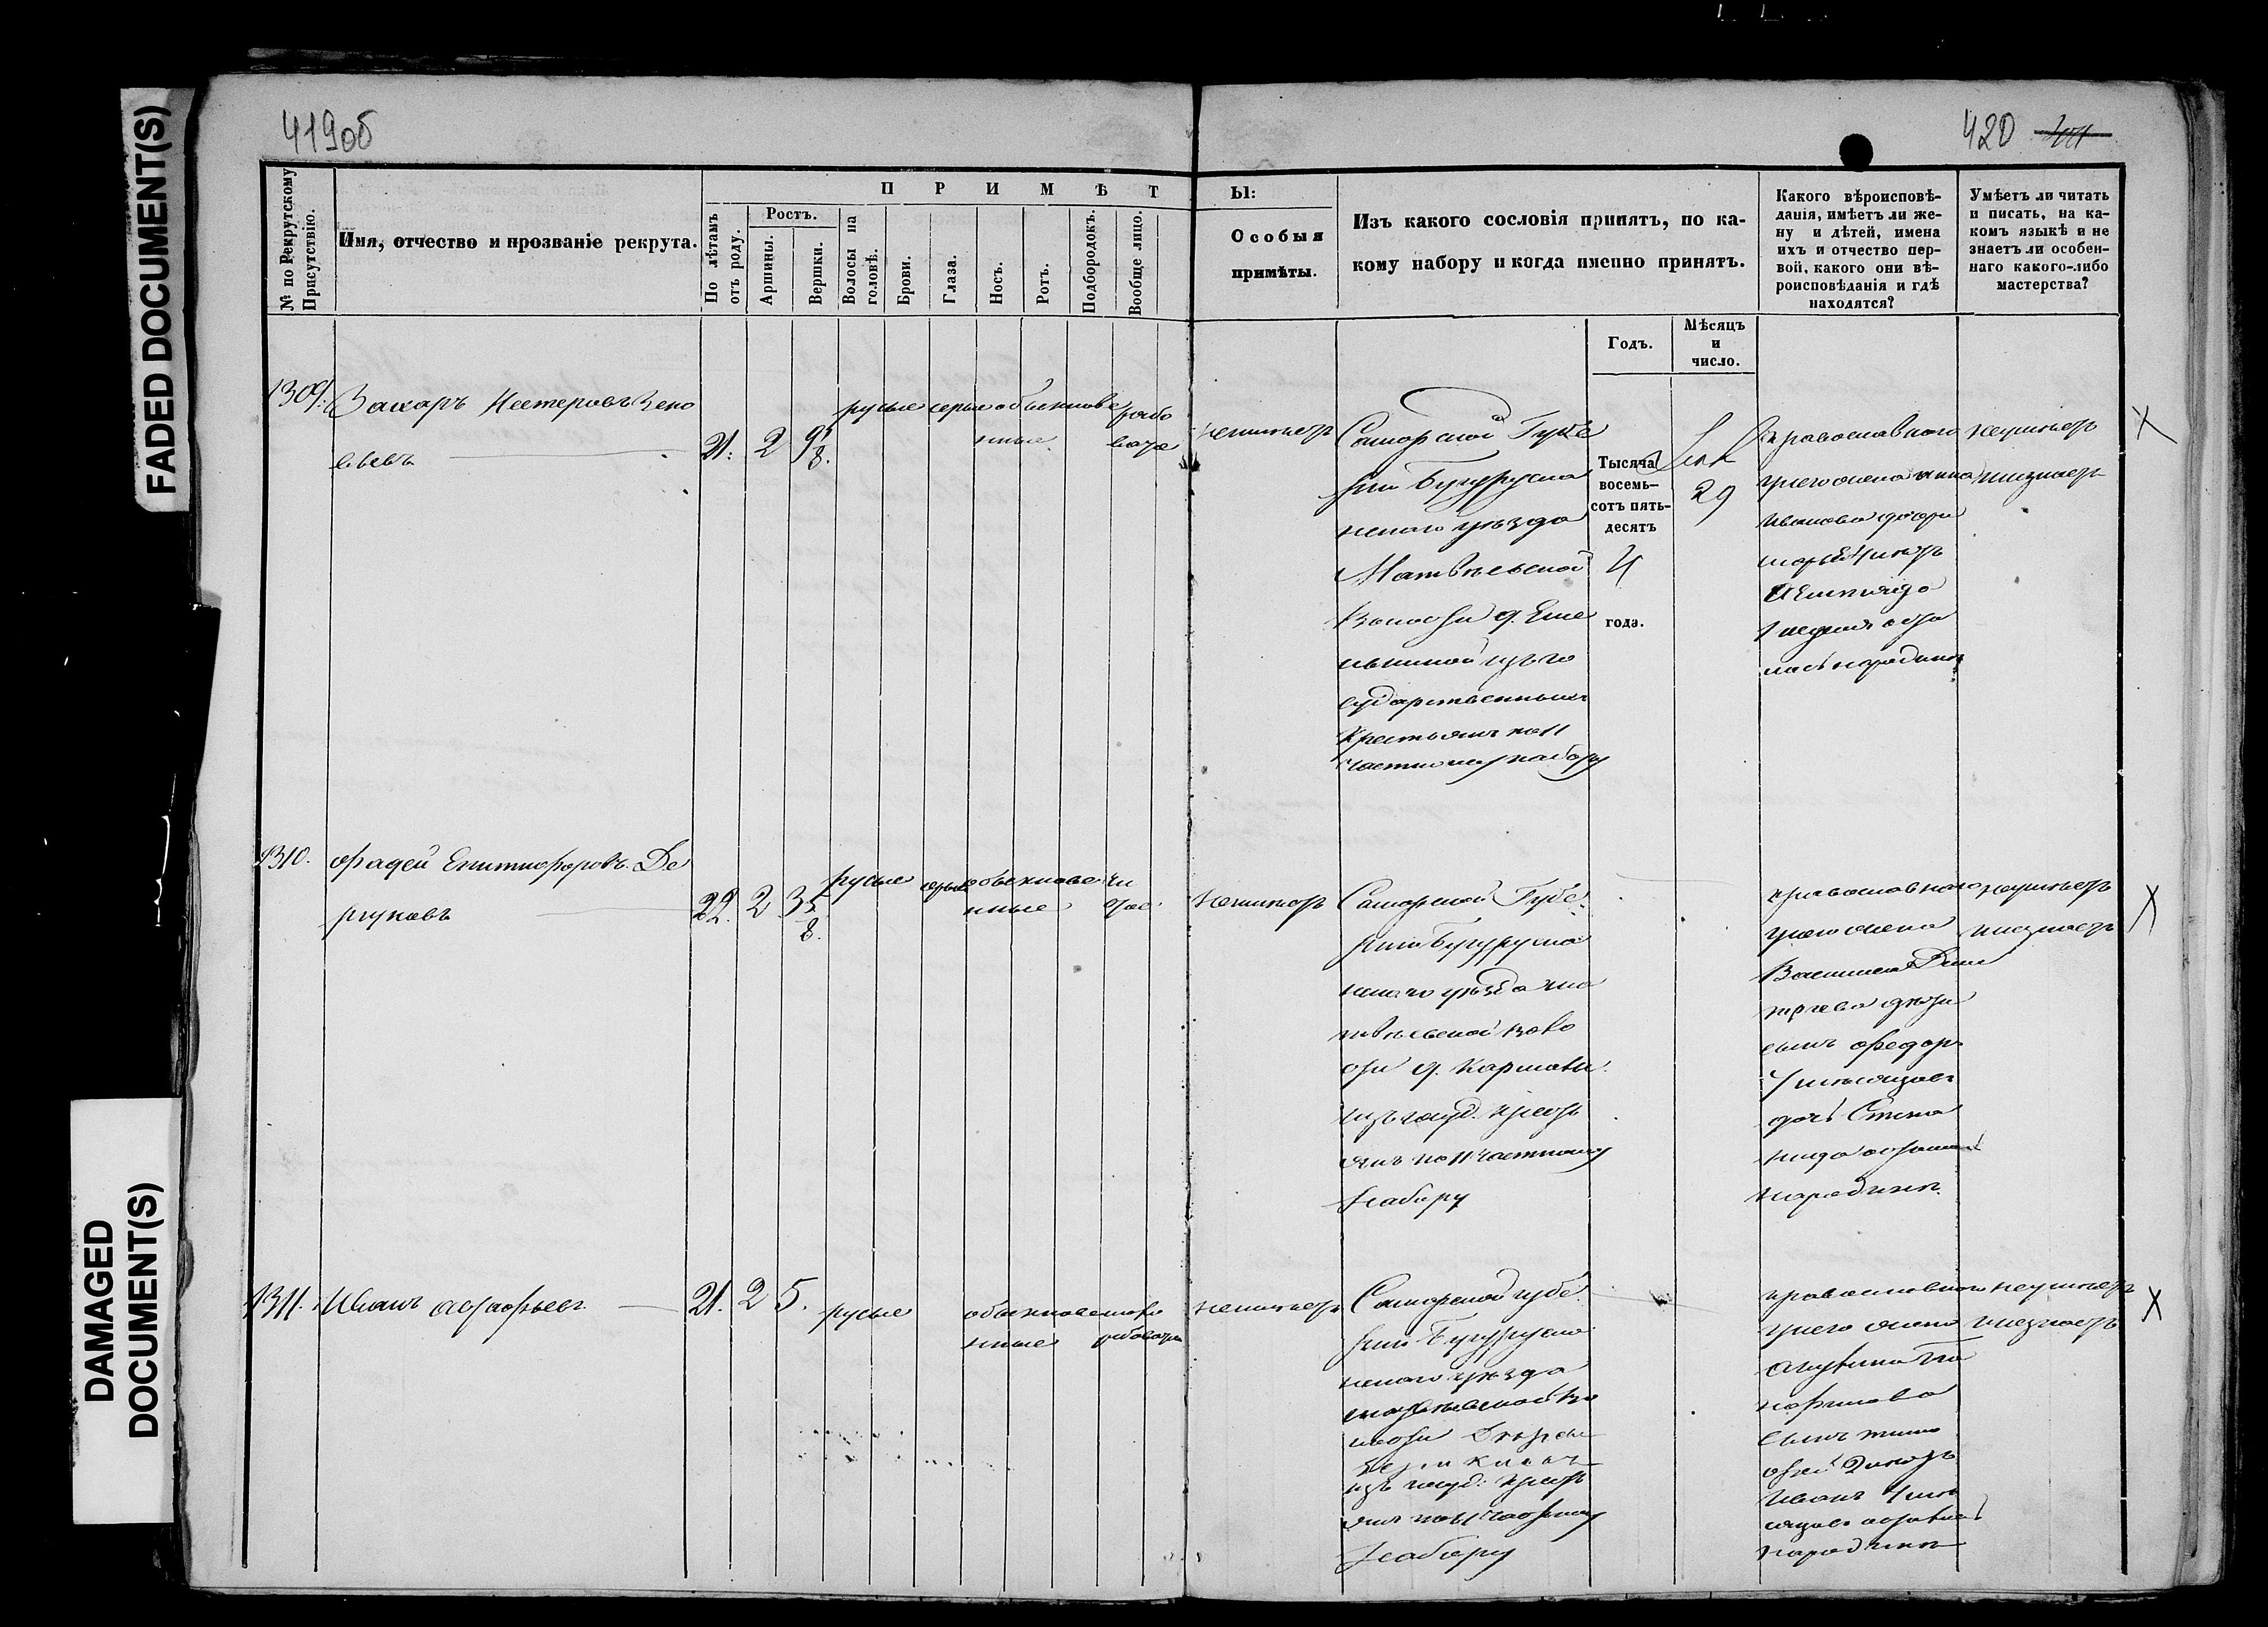 FADED DOCUMENT(S)
DAMAGED
DOCUMENT(S)
419об
420
№ по Рекрутскому
Присутствію.
Имя, отчество и прозваніе рекрута.
П Р И М Ѣ Т Ы:
По лѣтамъ
отъ роду.
Ростъ.
Аршины.
Вершки.
Волосы на
головѣ.
Брови.
Глаза.
Носъ.
Ротъ.
Подбородокъ.
Вообще лицо.
Особыя
примѣты.
Изъ какого сословія принятъ, по ка-
кому набору и когда именно принятъ.
Годъ.
Мѣсяцъ
и
число.
Какого вѣроисповѣ-
данія, имѣетъ ли же-
ну и дѣтей, имена
ихъ и отчество пер-
вой, какого они вѣ-
роисповѣданія и гдѣ
находятся?
Умѣетъ ли читать
и писать, на ка-
комъ языкѣ и не
знаетъ ли особен-
наго какого-либо
мастерства?
1309. Захаръ Нестеровъ Зено
вьевъ 21. 2 9 1/8.
русые серые обыкнове
нные
рябо
ватое
неимѣетъ
Самарской Губе
рніи Бугурусла
нскаго уѣзда
Матвѣевской
Волости д. Еме
лькиной изъ го
сударственныхъ
Крестьянъ по 11
частному набору
Тысяча
восемь-
сотъ пять-
десятъ
4
года.
29
православнаго
у него жена Анна
Иванова дочери
Марья 4 лѣтъ
1 неделя оста
лась народинѣ
неумѣетъ
незнаетъ
X
1310. Фадей Епитифоровъ. Де
ргуновъ 22. 2 3 5/8.
русые серые обыкнове
нные
чи
стое
неимѣетъ
Самарской Губе
рніи Бугурусла
нскаго уѣзда Ма
твѣевской Воло
сти д. Кармалы
изъ госуд. крест
янъ по 11 частному
Набору
православнаго
у него жена
Василиса Дми
трева дѣти
сынъ Федоръ
дочь Степа
нида осталис
народинѣ.
неумѣетъ
незнаетъ
X
1311. Иванъ Астафьевъ 21. 2 5. русые
обыкнове
нные
неимѣетъ
Самарской губе
рніи Бугурусла
нскаго уѣзда
Матвѣевской Во
лости
изъ госуд. крест
янъ по 11 частному
Набору
православнаго
у него жена
Акулина
сынъ Тимо
фей 2 лѣтъ
Иванъ 4 мѣ
сяцовъ осталис
народинѣ
неумѣетъ
незнаетъ
X